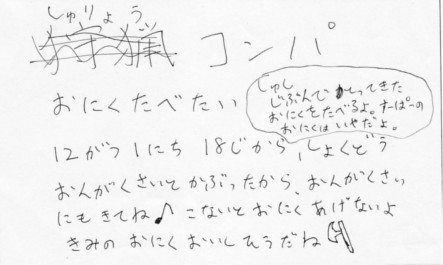 しゅりょう
コンパ
しゅし
じぶんで かってきた
おにくをたべるよ。すーぱーの
おにくは いやだよ。
おにくたべたい
12がつ1にち 18じから、しょくどう
おんがくさいと かぶったから、おんがくさい
にも きてね♪ こないと おにく あげないよ
きみの おにく おいしそうだね